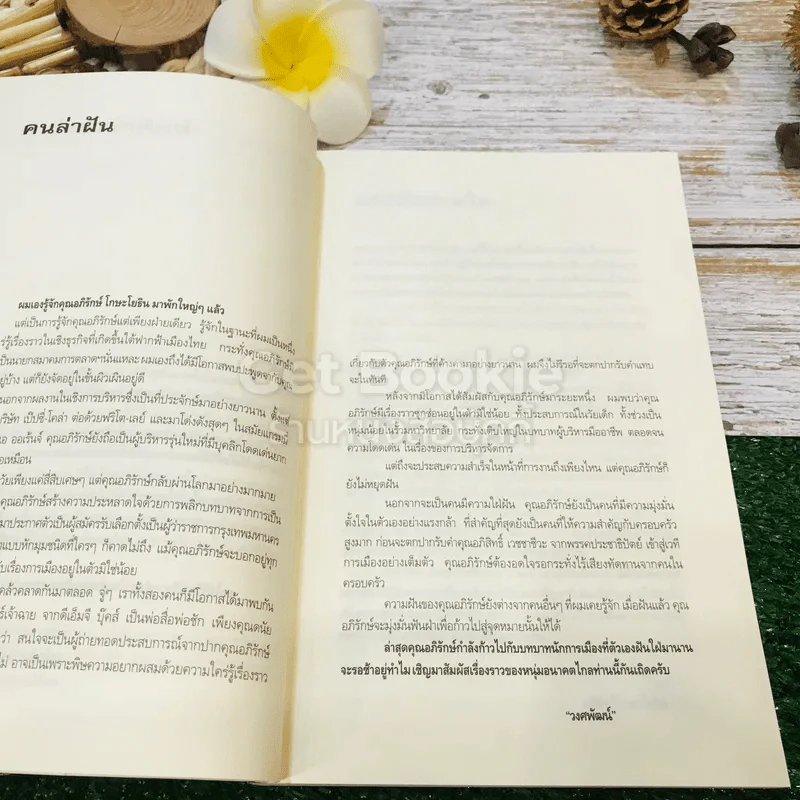 คนล่าฝัน
ผมเองรู้จักคุณอภิรักษ์ โกษะโยธิน มาพักใหญ่ๆ แล้ว
แต่เป็นการรู้จักคุณอภิรักษ์แต่เพียงฝ่ายเดียว รู้จักในฐานะที่ผมเป็นหนึ่ง
รู้เรื่องราวในเชิงธุรกิจที่เกิดขึ้นใต้ฟากฟ้าเมืองไทย กระทั่งคุณอภิรักษ์
เป็นนายกสมาคมการตลาดฯนั่นแหละผมเองถึงได้มีโอกาสพบปะพูดจากับคุณ
อยู่บ้าง แต่ก็ยังจัดอยู่ในขั้นผิวเผินอยู่ดี
นอกจากผลงานในเชิงการบริหารซึ่งเป็นที่ประจักษ์มาอย่างยาวนาน ตั้งแต่
บริษัท เป๊ปซี่-โคล่า ต่อด้วยฟริโต-เลย์ และมาโด่งดังสุดๆ ในสมัยแกรมมี่
ออเร้นจ์ คุณอภิรักษ์ยังถือเป็นผู้บริหารรุ่นใหม่ที่มีบุคลิกโดดเด่นยาก
เหมือน
วัยเพียงแค่สี่สิบเศษๆ แต่คุณอภิรักษ์กลับผ่านโลกมาอย่างมากมาย
คุณอภิรักษ์สร้างความประหลาดใจด้วยการพลิกบทบาทจากการเป็น
มาประกาศตัวเป็นผู้สมัครรับเลือกตั้งเป็นผู้ว่าราชการกรุงเทพมหานคร
แบบหักมุมชนิดที่ใครๆ ก็คาดไม่ถึง แม้คุณอภิรักษ์จะบอกอยู่ทุก
เรื่องการเมืองอยู่ในตัวมิใช่น้อย
คลัวคลาดกันมาตลอด จู่ๆ เราทั้งสองคนก็มีโอกาสได้มาพบกัน
เจ้าฉาย จากดีเอ็มจี บุ๊คส์ เป็นพ่อสื่อพ่อชัก เพียงคุณดนัย
ว่า สนใจจะเป็นผู้ถ่ายทอดประสบการณ์จากปากคุณอภิรักษ์
ไม่ อาจเป็นเพราะพิษความอยากผสมด้วยความใคร่รู้เรื่องราว
เกี่ยวกับตัวคุณอภิรักษ์ที่ค้างคามาอย่างยาวนาน ผมจึงไม่รีรอที่จะตกปากรับคำแทบ
จะในทันที
หลังจากมีโอกาสได้สัมผัสกับคุณอภิรักษ์มาระยะหนึ่ง ผมพบว่าคุณ
อภิรักษ์มีเรื่องราวซุกซ่อนอยู่ในตัวมิใช่น้อย ทั้งประสบการณ์ในวัยเด็ก ทั้งช่วงเป็น
หนุ่มน้อยในรั้วมหาวิทยาลัย กระทั่งเติบใหญ่ในบทบาทผู้บริหารมืออาชีพ ตลอดจน
ความโดดเด่น ในเรื่องของการบริหารจัดการ
แต่ถึงจะประสบความสำเร็จในหน้าที่การงานถึงเพียงไหน แต่คุณอภิรักษ์ก็
ยังไม่หยุดฝัน
นอกจากจะเป็นคนมีความใฝ่ฝัน คุณอภิรักษ์ยังเป็นคนที่มีความมุ่งมั่น
ตั้งใจในตัวเองอย่างแรงกล้า ที่สำคัญที่สุดยังเป็นคนที่ให้ความสำคัญกับครอบครัว
สูงมาก ก่อนจะตกปากรับคำคุณอภิสิทธิ์ เวชชาชีวะ จากพรรคประชาธิปัตย์ เข้าสู่เวที
การเมืองอย่างเต็มตัว คุณอภิรักษ์ต้องอดใจรอกระทั่งไร้เสียงทัดทานจากคนใน
ครอบครัว
ความฝันของคุณอภิรักษ์ยังต่างจากคนอื่นๆ ที่ผมเคยรู้จัก เมื่อฝันแล้ว คุณ
อภิรักษ์จะมุ่งมั่นฟันฝ่าเพื่อก้าวไปสู่จุดหมายนั้นให้ได้
ล่าสุดคุณอภิรักษ์กำลังก้าวไปกับบทบาทนักการเมืองที่ตัวเองฝันใฝ่มานาน
จะรอช้าอยู่ทำไม เชิญมาสัมผัสเรื่องราวของหนุ่มอนาคตไกลท่านนี้กันเถิดครับ
"วงศพัฒน์"
Get Bookie